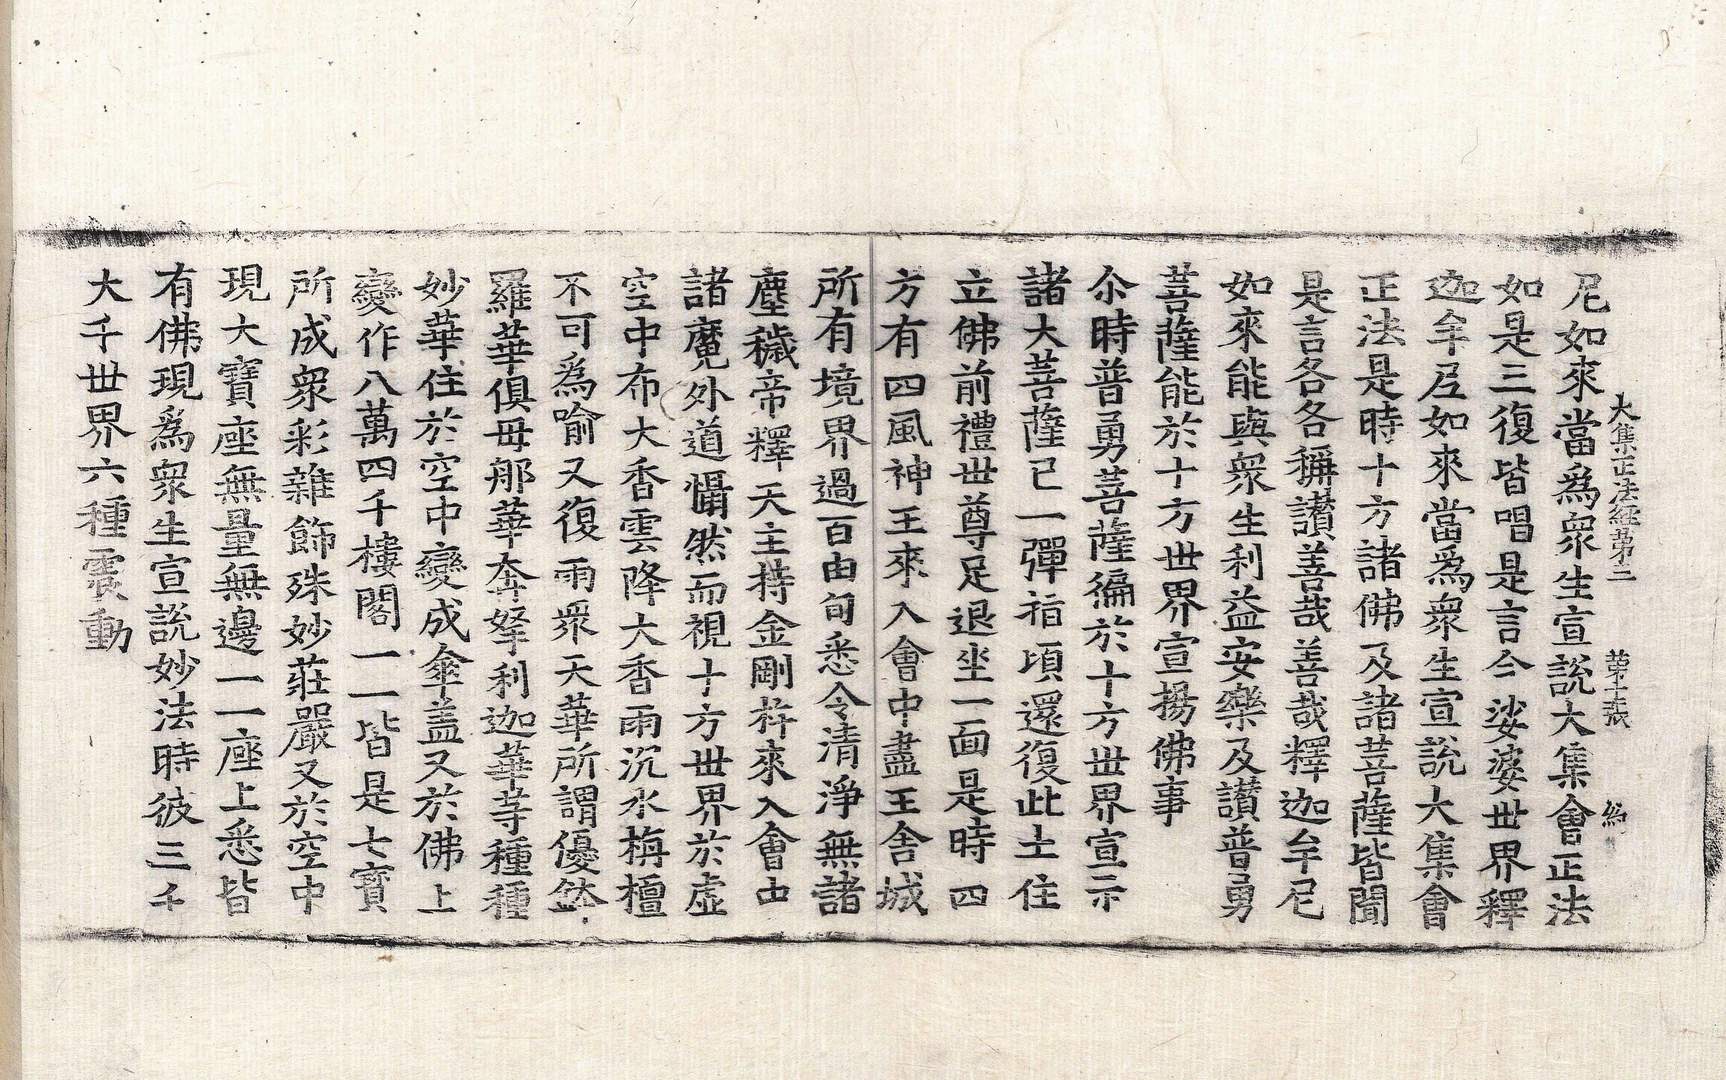 大集正法經第二　第十二張　約
尼如來當爲衆生宣說大集會正法
如是三復皆唱是言今娑婆世界釋
迦牟尼如來當爲衆生宣說大集會
正法是時十方諸佛及諸菩薩皆聞
是言各各稱讃善哉善哉釋迦牟尼
如來能與衆生利益安樂及讃普勇
菩薩能於十方世界宣揚佛事
尒時普勇菩薩徧於十方世界宣示
諸大菩薩已一彈指頃還復此土住
立佛前禮世尊足退坐一面是時四
方有四風神王來入會中盡王舍城
所有境界過百由旬悉令清淨無諸
塵穢帝釋天主持金剛杵來入會由
諸魔外道懾然而視十方世界於虛
空中布大香雲降大香雨沉水栴檀
不可爲喻又復雨衆天華所謂優鉢
羅華俱毋那華奔拏利迦華等種種
妙華住於空中變成傘盖又於佛上
變作八萬四千樓閣一一皆是七寶
所成衆彩雜飾殊妙莊嚴又於空中
現大寶座無量無邊一一座上悉皆
有佛現爲衆生宣說妙法時彼三千
大千世界六種震動